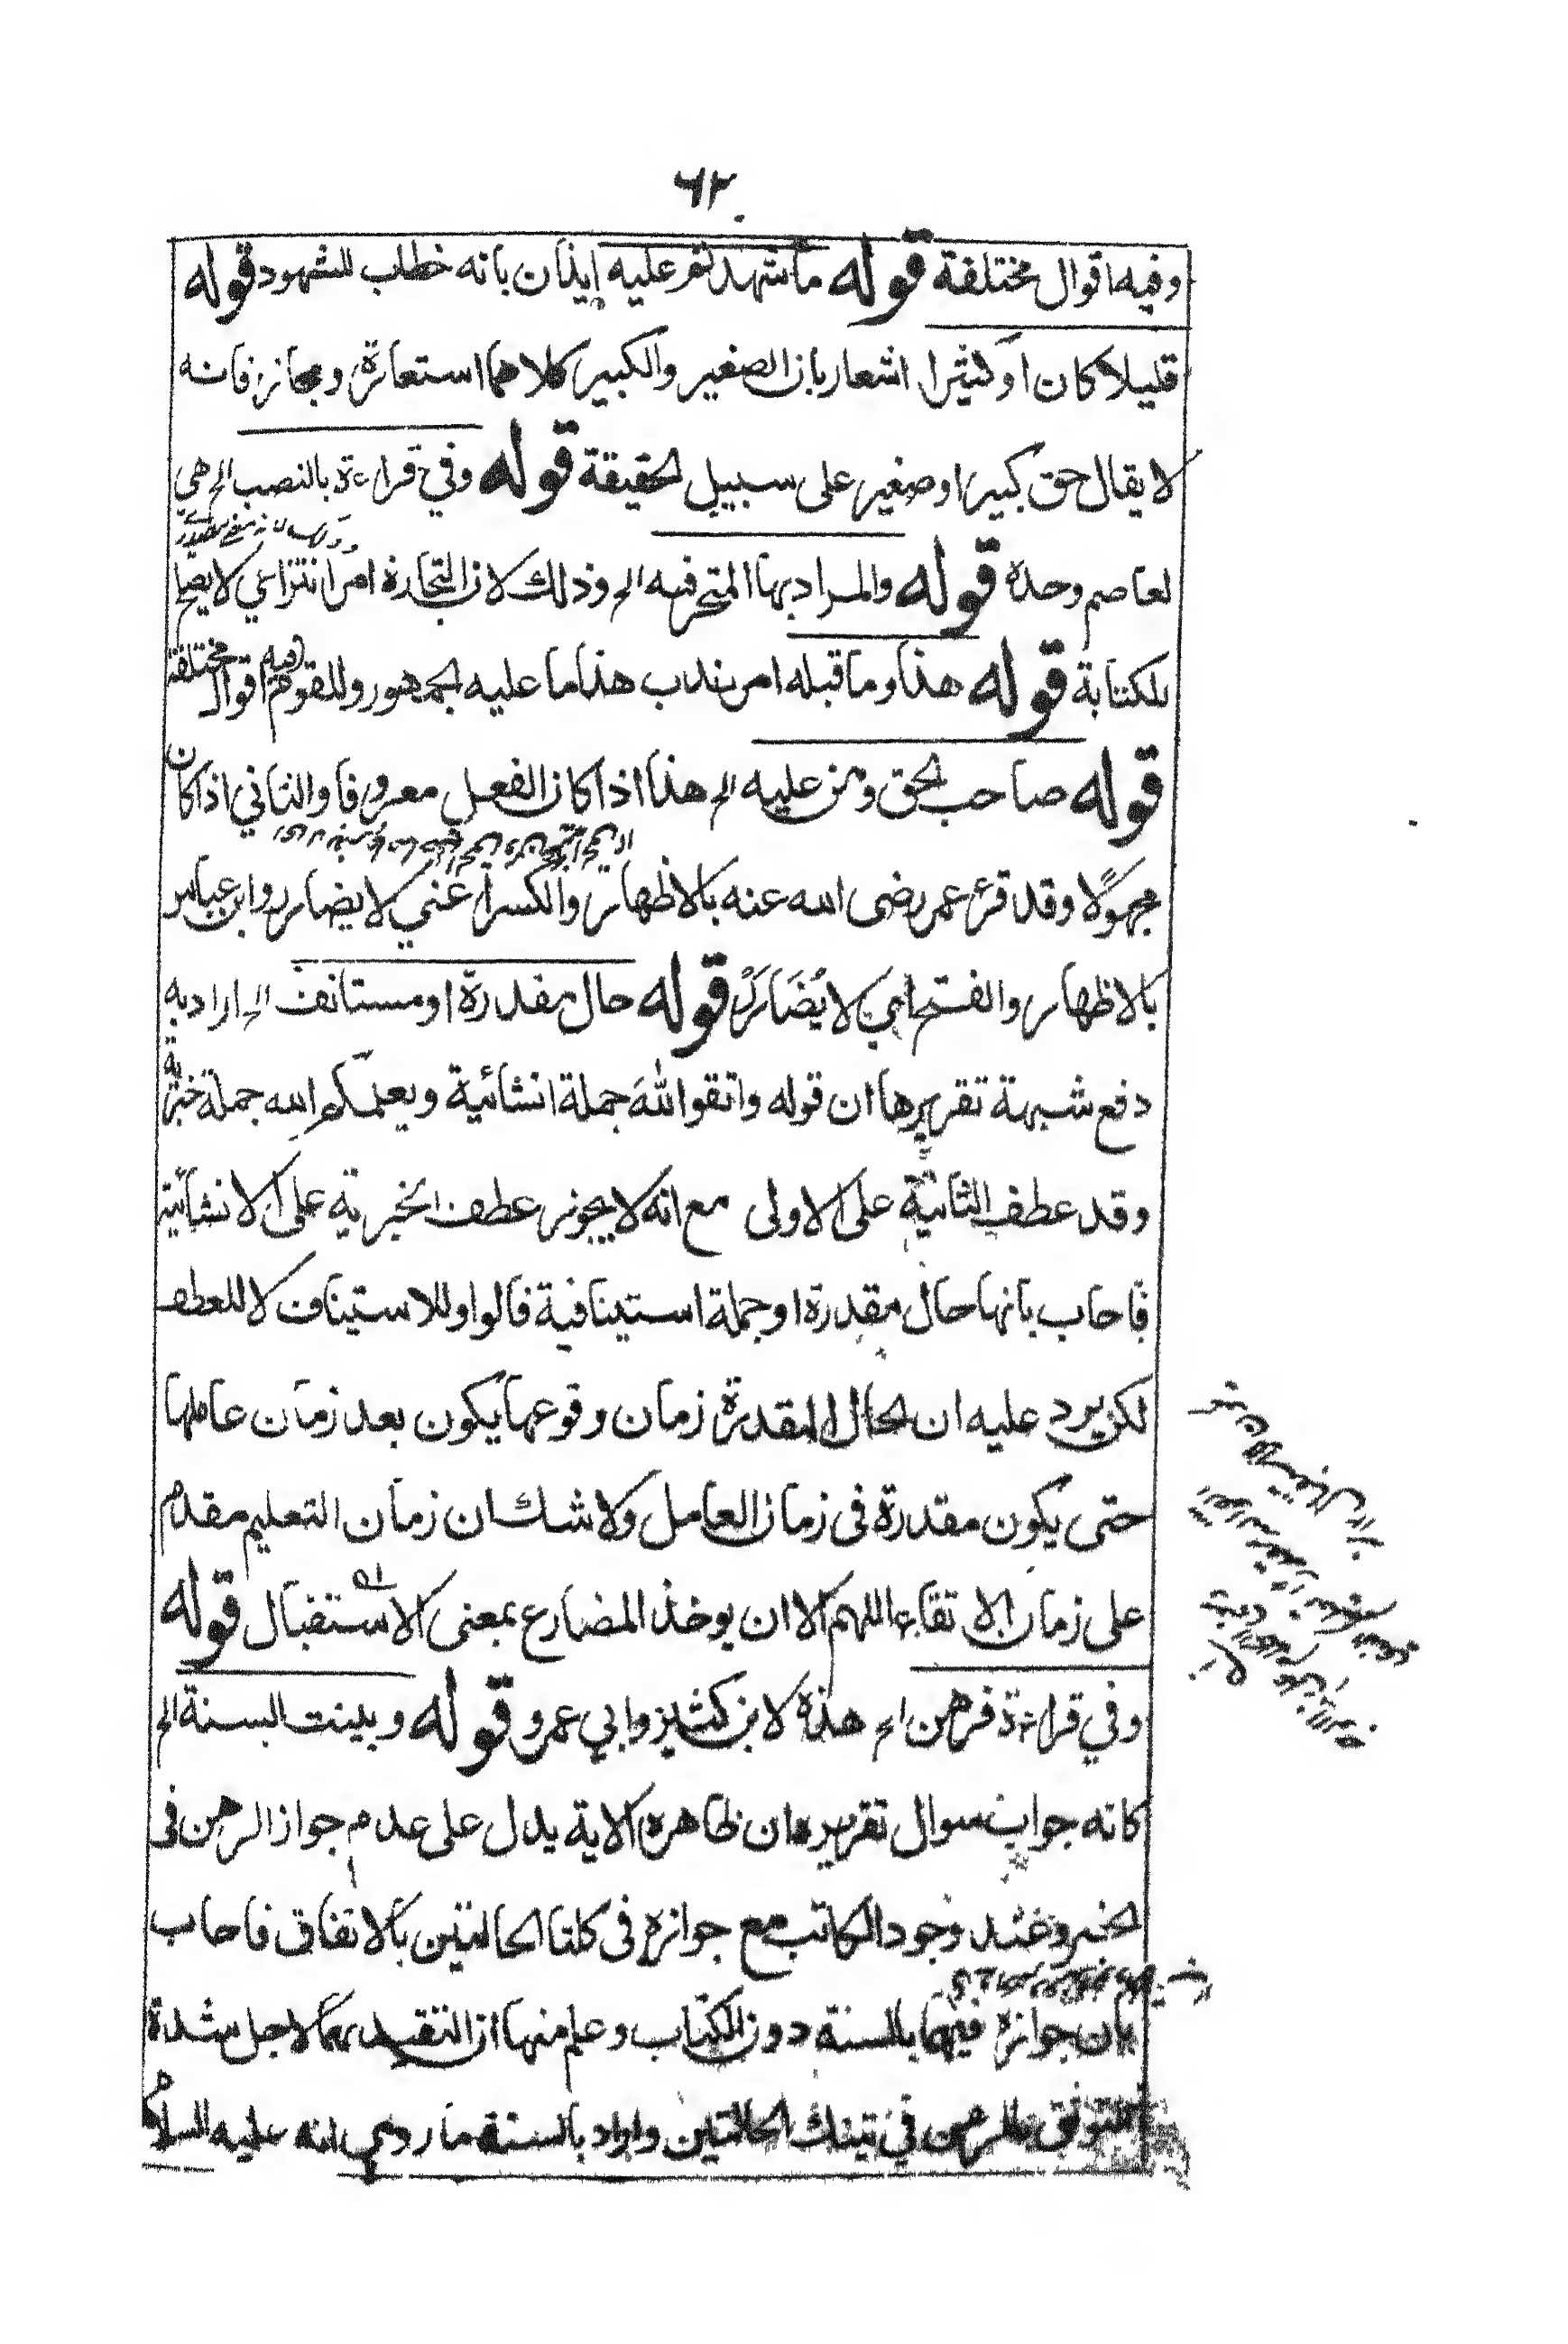 ٦٢
وفيه اقوال مختلفة قوله ما شهد تم عليه إيذان بانه خطاب للشهود قوله
قليلا كان او كثيرا اشعار بان الصغير والكبير كلاهما استعارة ومجاز فانه
لا يقال حق كبير او صغير على سبيل الحقيقة قوله وفي قراءة بالنصب الخ هي
لعاصم وحده قوله والمراد بها المتجر فيه الخ وذلك لان التجارة امر انتزاعي لا يصلح
للكتابة قوله هذا وما قبله امر ندب هذا ما عليه الجمهور وللقوم فيه اقوال مختلفة
قوله صاحب الحق ومن عليه الخ هذا اذا كان الفعل معروفا والثاني اذا كان
مجهولًا وقد قرئ عمر رضى الله عنه بالاظهار والكسر اعني لا يضارر وابن عباس
بالاظهار والفتح اي لا يُضَارَرْ قوله حال مقدرة او مستانف الخ اراد به
دفع شبهة تقريرها ان قوله واتقوا اللهَ جملة انشائية ويعلمكم الله جملة خبرية
وقد عطف الثانية على الاولى مع انه لا يجوز عطف الخبرية على الانشائية
فاجاب بانها حال مقدرة او جملة استينافية فالواو للاستيناف لا للعطف
لكن يرد عليه ان الحال المقدرة زمان وقوعها يكون بعد زمان عاملها
حتى يكون مقدرة فى زمان العامل ولا شك ان زمان التعليم مقدم
على زمان الاتقاء اللهم الا ان يوخذ المضارع بمعنى الاستقبال قوله
وفي قراءة فرهن الخ هذه لابن كثير وابي عمرو قوله وبينت السنة الخ
كانه جواب سوال تقريره ان ظاهر الاية يدل على عدم جواز الرهن فى
الحضر وعند وجود الكاتب مع جوازه فى كلتا الحالتين بالاتفاق فاجاب
بان جوازه فيهما بالسنة دون الكتاب وعلم منها ان التقييد بهما لاجل شدة
التوثق بالرهن في تينك الحالتين واراد بالسنة ما روي انه عليه السلام